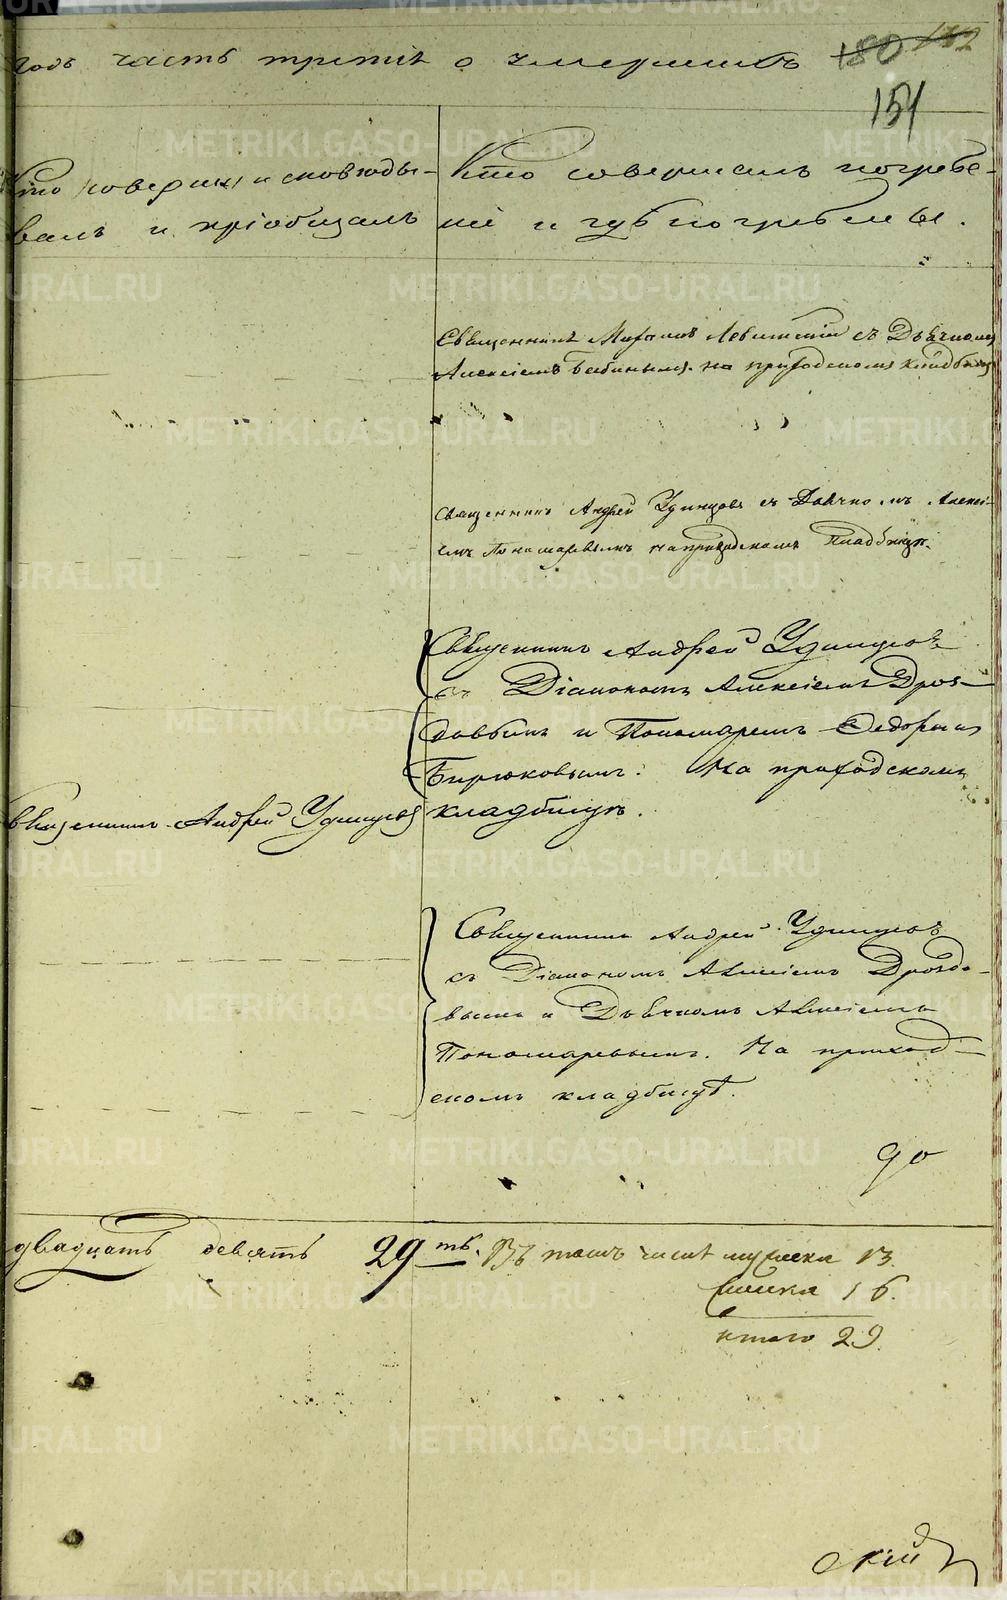 годъ часть третія о умершихъ 180 132
151
кто совершал исповѣды-
валъ и пріобщалъ
Кто совершалъ погребе-
ніе и гдѣ погребены.
Священникъ Левитскій съ Дьячкомъ
Алексіемъ Бабинымъ. на приходскомъ кладбищѣ
Священникъ Андрей Удинцовъ съ Дьячкомъ Алексі-
емъ Пономаревымъ на приходскомъ Кладбищѣ.
Священникъ Андрей Удинцовъ
съ Діакономъ Алексіемъ Дроз-
довымъ и Пономаремъ Ѳедоромъ
Бирюковымъ. На приходскомъ
кладбищѣ.
Священникъ Андрей Удинцовъ
Священникъ Андрей Удинцовъ
съ Діакономъ Алексіемъ Дроздо-
вымъ и Дьячкомъ Алексіемъ
Пономаревымъ. На приход-
скомъ кладбищѣ.
90
двадцать девять 29ть. Въ томъ числѣ мужеска 13.
женска 16.
итого 29.
скій
METRIKI.GASO-URAL.RU